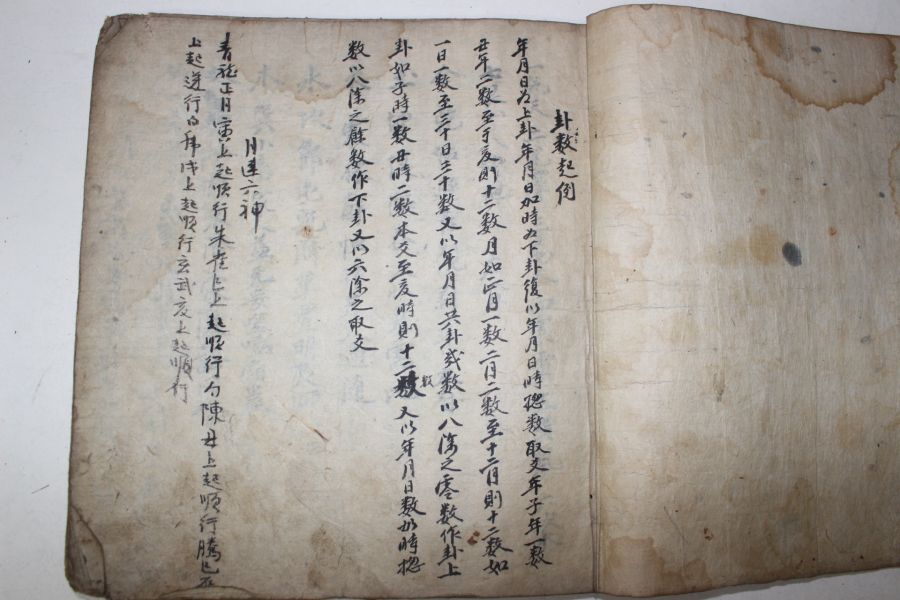 卦数起例
年月日为上卦年月日加時为下卦復以年月日時揔数取爻年子年一数
丑年二数至于亥則十二数月如正月一数二月二数至十二月則十二数如
一日一数至三十日三十数又以年月日共卦成数以八除之零数作卦上
卦如子時一数丑時二数至亥時則十二数又以年月日数加時揔
数以八除之餘数作下卦又以六除之取爻
月建六神
青龍正月寅上起順行朱雀巳上起順行勾陳丑上起順行騰巳
上起逆行白乕戌上起順行玄武亥上起順行